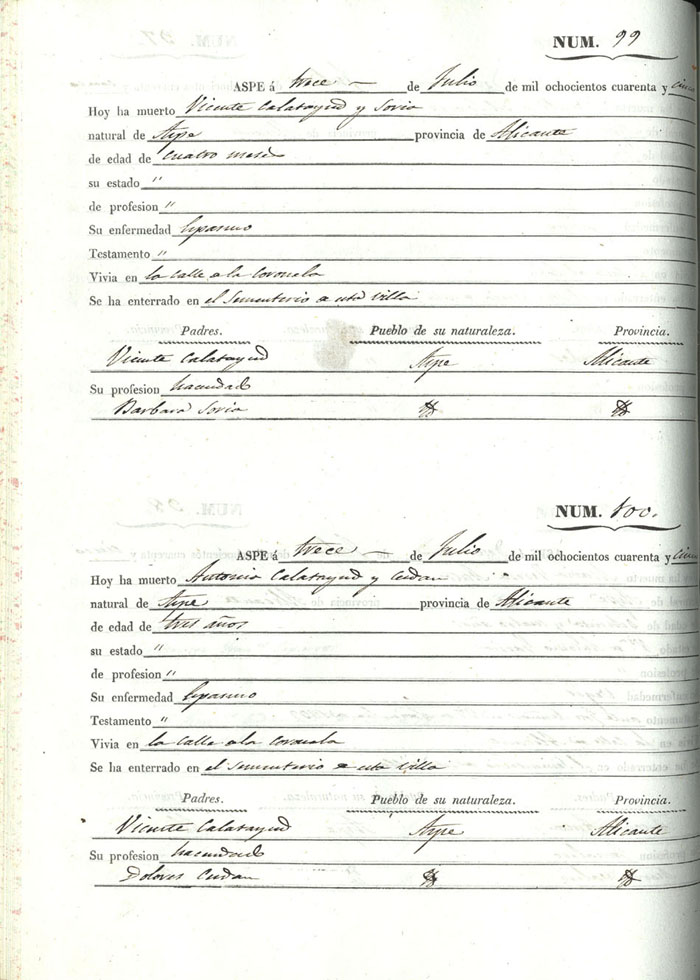 NUM. 99
ASPE á trece — de Julio de mil ochocientos cuarenta y cinco
Hoy ha muerto Vicente Calatayud y Soria
natural de Aspe provincia de Alicante
de edad de cuatro meses
su estado "
de profesion "
Su enfermedad Espasmo
Testamento "
Vivia en la calle de la Coronela
Se ha enterrado en el Sementerio de esta villa
Padres. Pueblo de su naturaleza. Provincia.
Vicente Calatayud Aspe Alicante
Su profesion hacendado
Barbara Soria
NUM. 100.
ASPE á trece — de Julio de mil ochocientos cuarenta y cinco
Hoy ha muerto Calatayud y
natural de Aspe provincia de Alicante
de edad de tres años
su estado "
de profesion "
Su enfermedad Espasmo
Testamento "
Vivia en la calle de la Coronela
Se ha enterrado en el Sementerio de esta villa
Padres. Pueblo de su naturaleza. Provincia.
Vicente Calatayud Aspe Alicante
Su profesion hacendado
Dolores